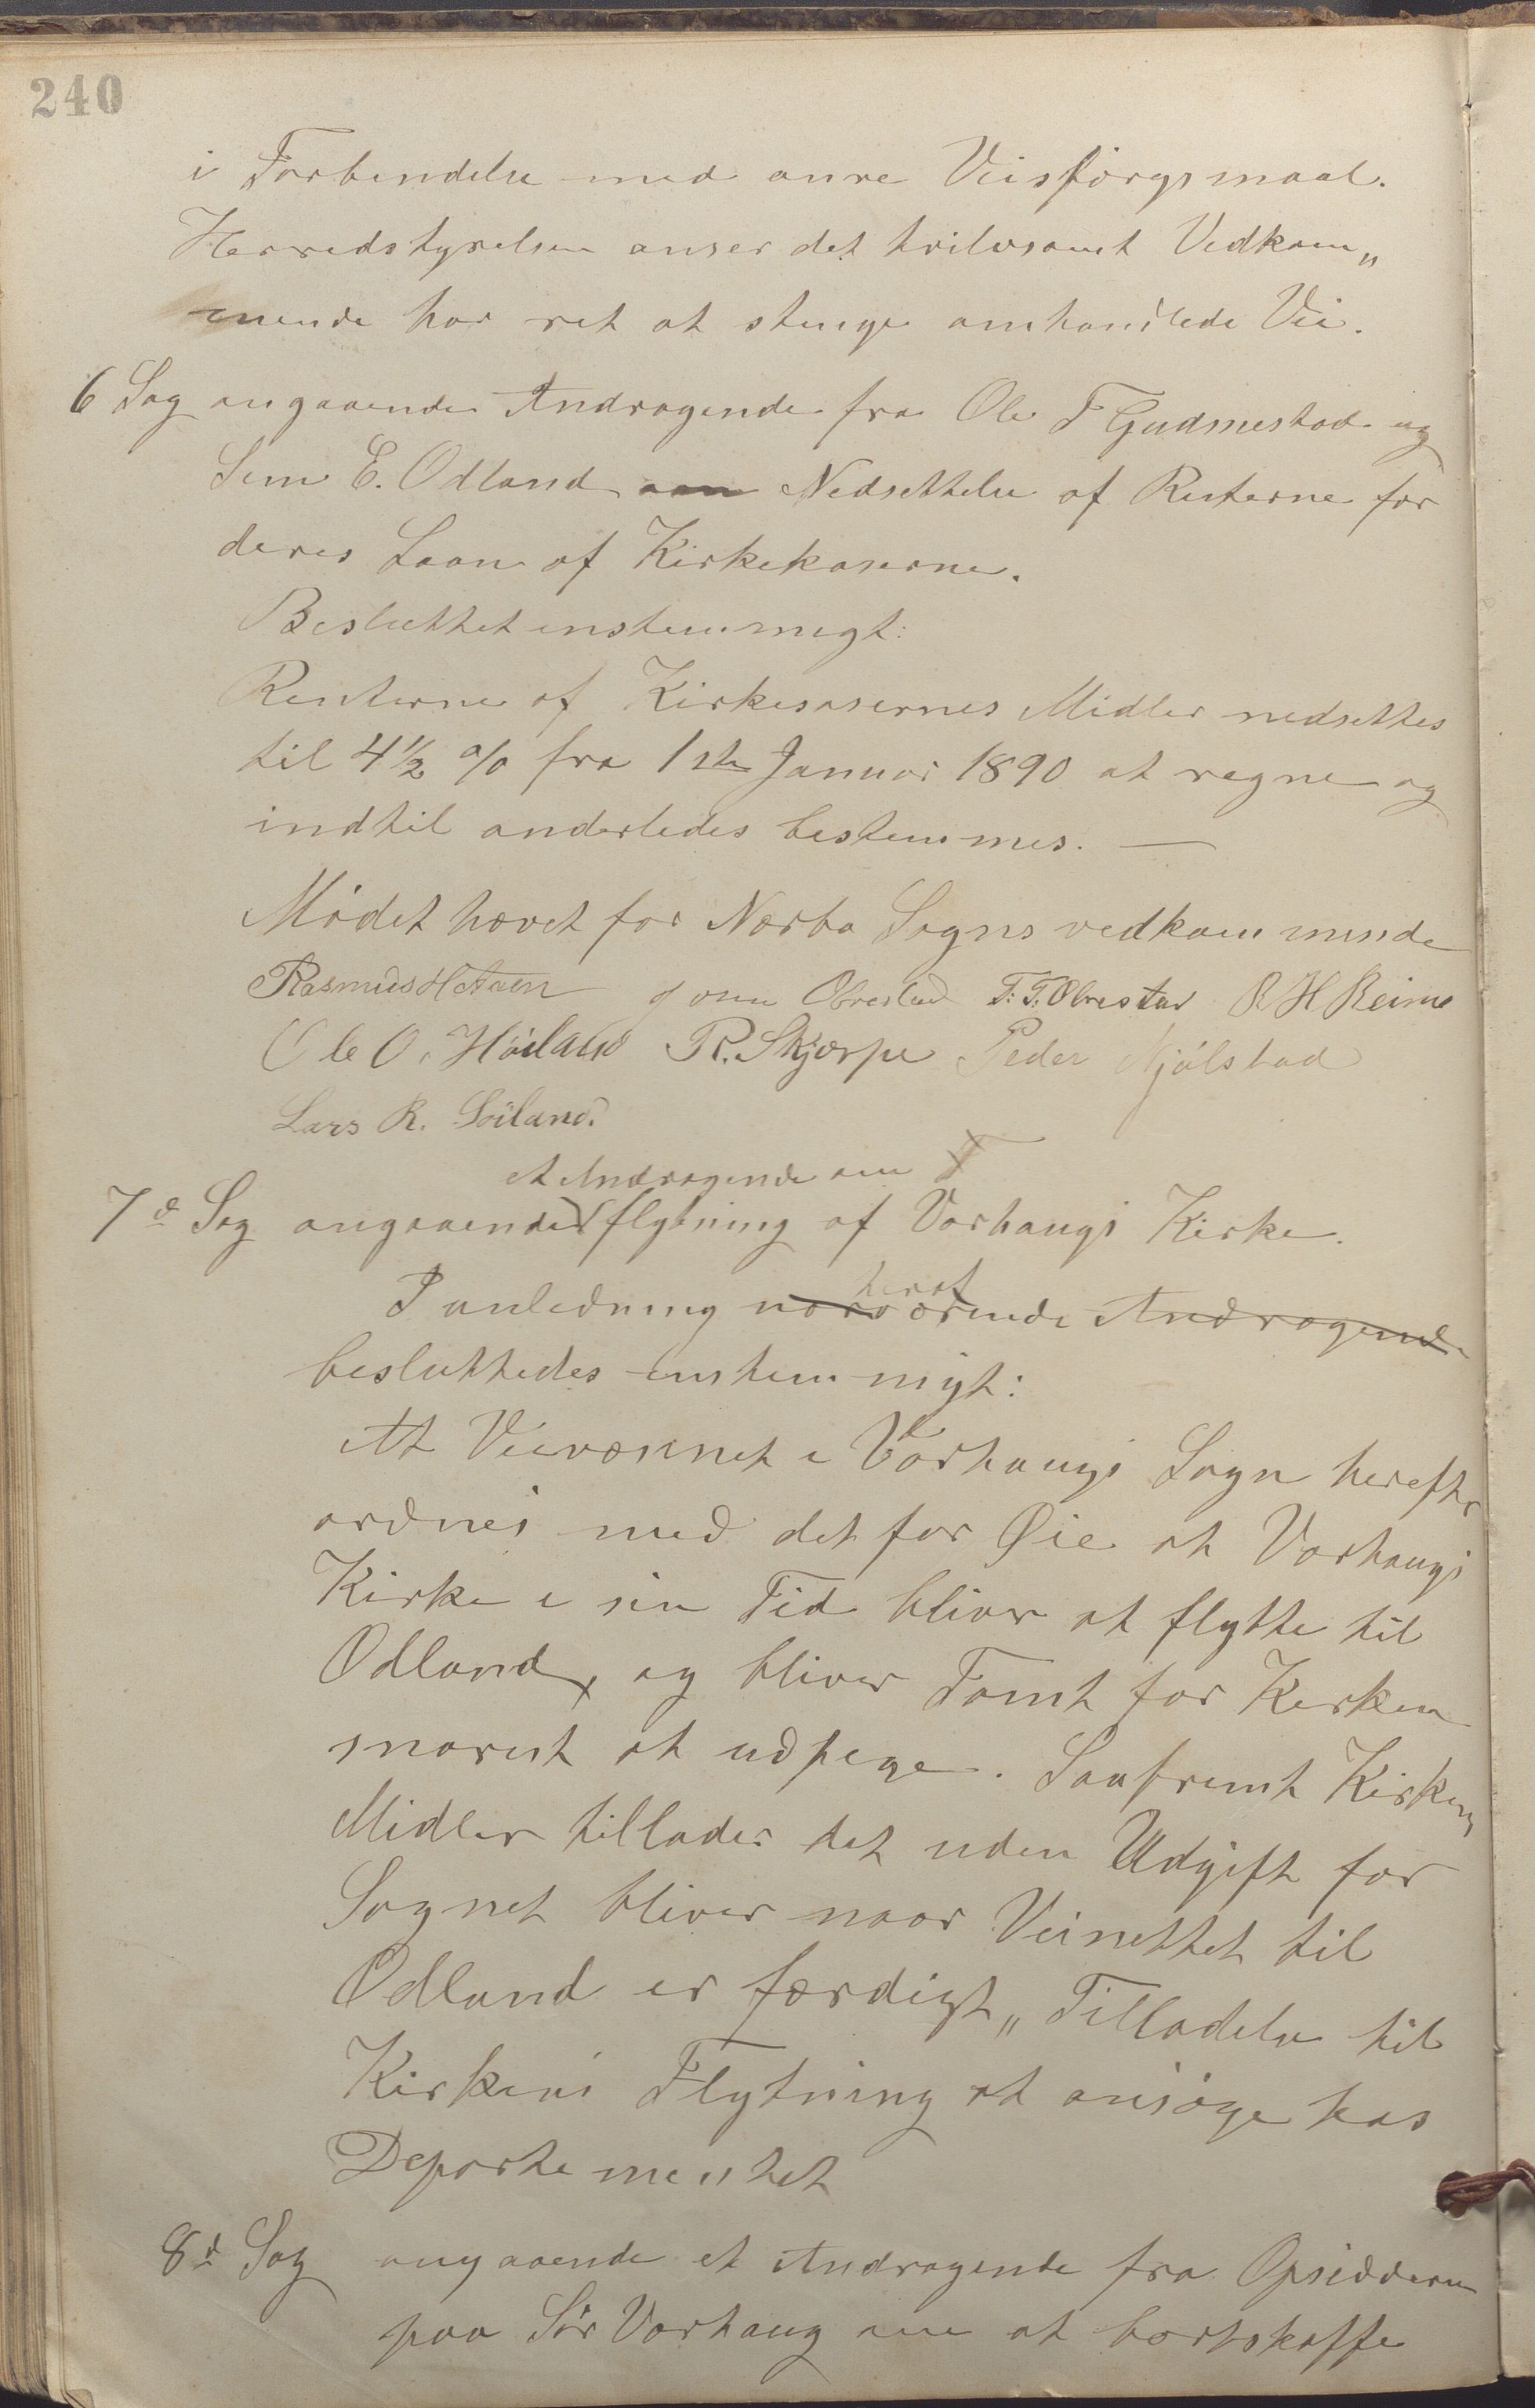 240
i Forbindelse med anre Veispörgsmaal.
Herredstyrelsen anser det tvilvsomt Vedkom„
mende har ret at stenge omhandlede Vei.
6 Sag angaaende Andragende fra Ole T Gudmestad og
Sem E. Odland om Nedsettelse af Renterne for
deres Laan af Kirkekaserne.
Besluttet enstemmigt:
Renterne af Kirkesasernes Midler nedsettes
til 4½ % fra 1ste Januar 1890 at regne og
indtil anderledes bestemmes. —
Mødet hævet for Nærbø Sogns vedkommende
Rasmus H Aaen Jonn Obrestad T. T. Obrestad R H Reime
Ole O. Höiland R. Skjærpe Peder Njölstad
Lars R. Söiland.
et Andragende om
7de Sag angaaende flytning af Varhaugs Kirke.
heraf
I anledning nærværende Andragende
besluttedes enstemmigt:
At Veivæsnet i Varhaugs Sogn herefter
ordnes med det for Øie at Varhaugs
Kirke i sin Tid bliver at flytte til
Odland, og bliver Tomt for Kirken
snarest at udpege. Saafremt Kirkens
Midler tillader det uden Udgift for
Sognet bliver naar Veinettet til
Odland er færdigt „ Tilladelse til
Kirkens Flytning at ansöge hos
Departementet
8de Sag angaaende et Andragende fra Opsidderne
paa Sör Varhaug om at bortskaffe